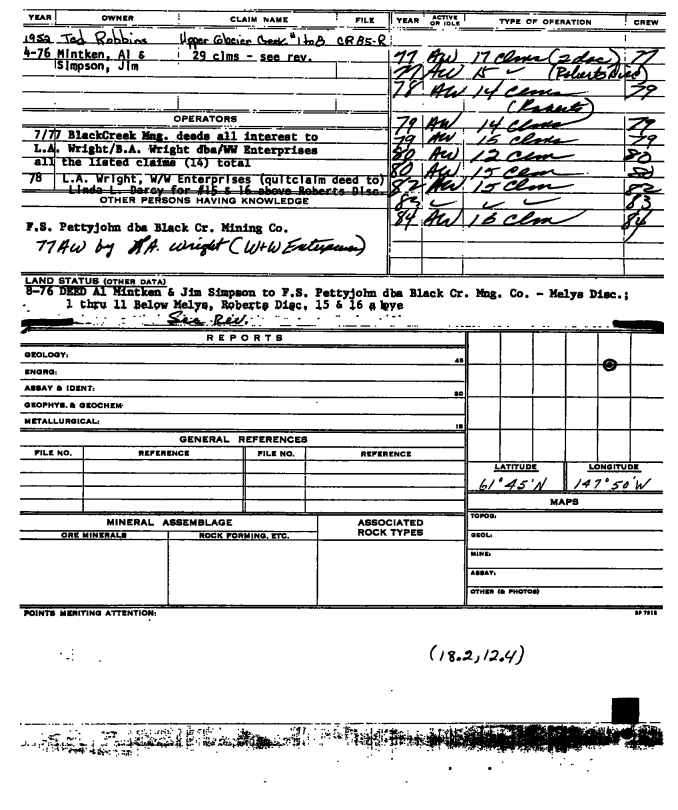 YEAR OWNER CLAIM NAME FILE YEAR ACTIVE OR IDLE TYPE OF OPERATION CREW
1952 Ted Robbins Upper Glacier Creek #1 to 8 CRB5-R
4-76 Mintken, Al & 29 clms - see rev. 77 AW 17 clms (2 doc) 77
Simpson, Jim 77 AW 15 ✓ (Roberts Disc)
78 AW 14 clms 79
(Roberts)
OPERATORS 79 AW 14 clms 79
7/77 BlackCreek Mng. deeds all interest to 79 AW 15 clms 79
L.A. Wright/B.A. Wright dba/WW Enterprises 80 AW 12 clm 80
all the listed claims (14) total 80 AW 15 clm 80
78 L.A. Wright, W/W Enterprises (quitclaim deed to) 82 AW 15 clm 82
Linda L. Darcy for #15 & 16 above Roberts Disc.
OTHER PERSONS HAVING KNOWLEDGE 83 ✓ ✓ ✓ 83
84 AW 16 clm 84
F.S. Pettyjohn dba Black Cr. Mining Co.
77 AW by L.A. Wright (W+W Enterprises)
LAND STATUS (OTHER DATA)
8-76 DEED Al Mintken & Jim Simpson to F.S. Pettyjohn dba Black Cr. Mng. Co. - Melys Disc.;
1 thru 11 Below Melys, Roberts Disc, 15 & 16 a bove
See Rev.
REPORTS
GEOLOGY: 45
ENGRG:
ASSAY & IDENT: 30
GEOPHYS. & GEOCHEM:
METALLURGICAL: 15
GENERAL REFERENCES
FILE NO. REFERENCE FILE NO. REFERENCE
LATITUDE LONGITUDE
61°45'N 147°50'W
MAPS
MINERAL ASSEMBLAGE ASSOCIATED ROCK TYPES
ORE MINERALS ROCK FORMING, ETC.
TOPOG:
GEOL:
MINE:
ASSAY:
OTHER (& PHOTOS)
POINTS MERITING ATTENTION: SF 7912
(18.2, 12.4)